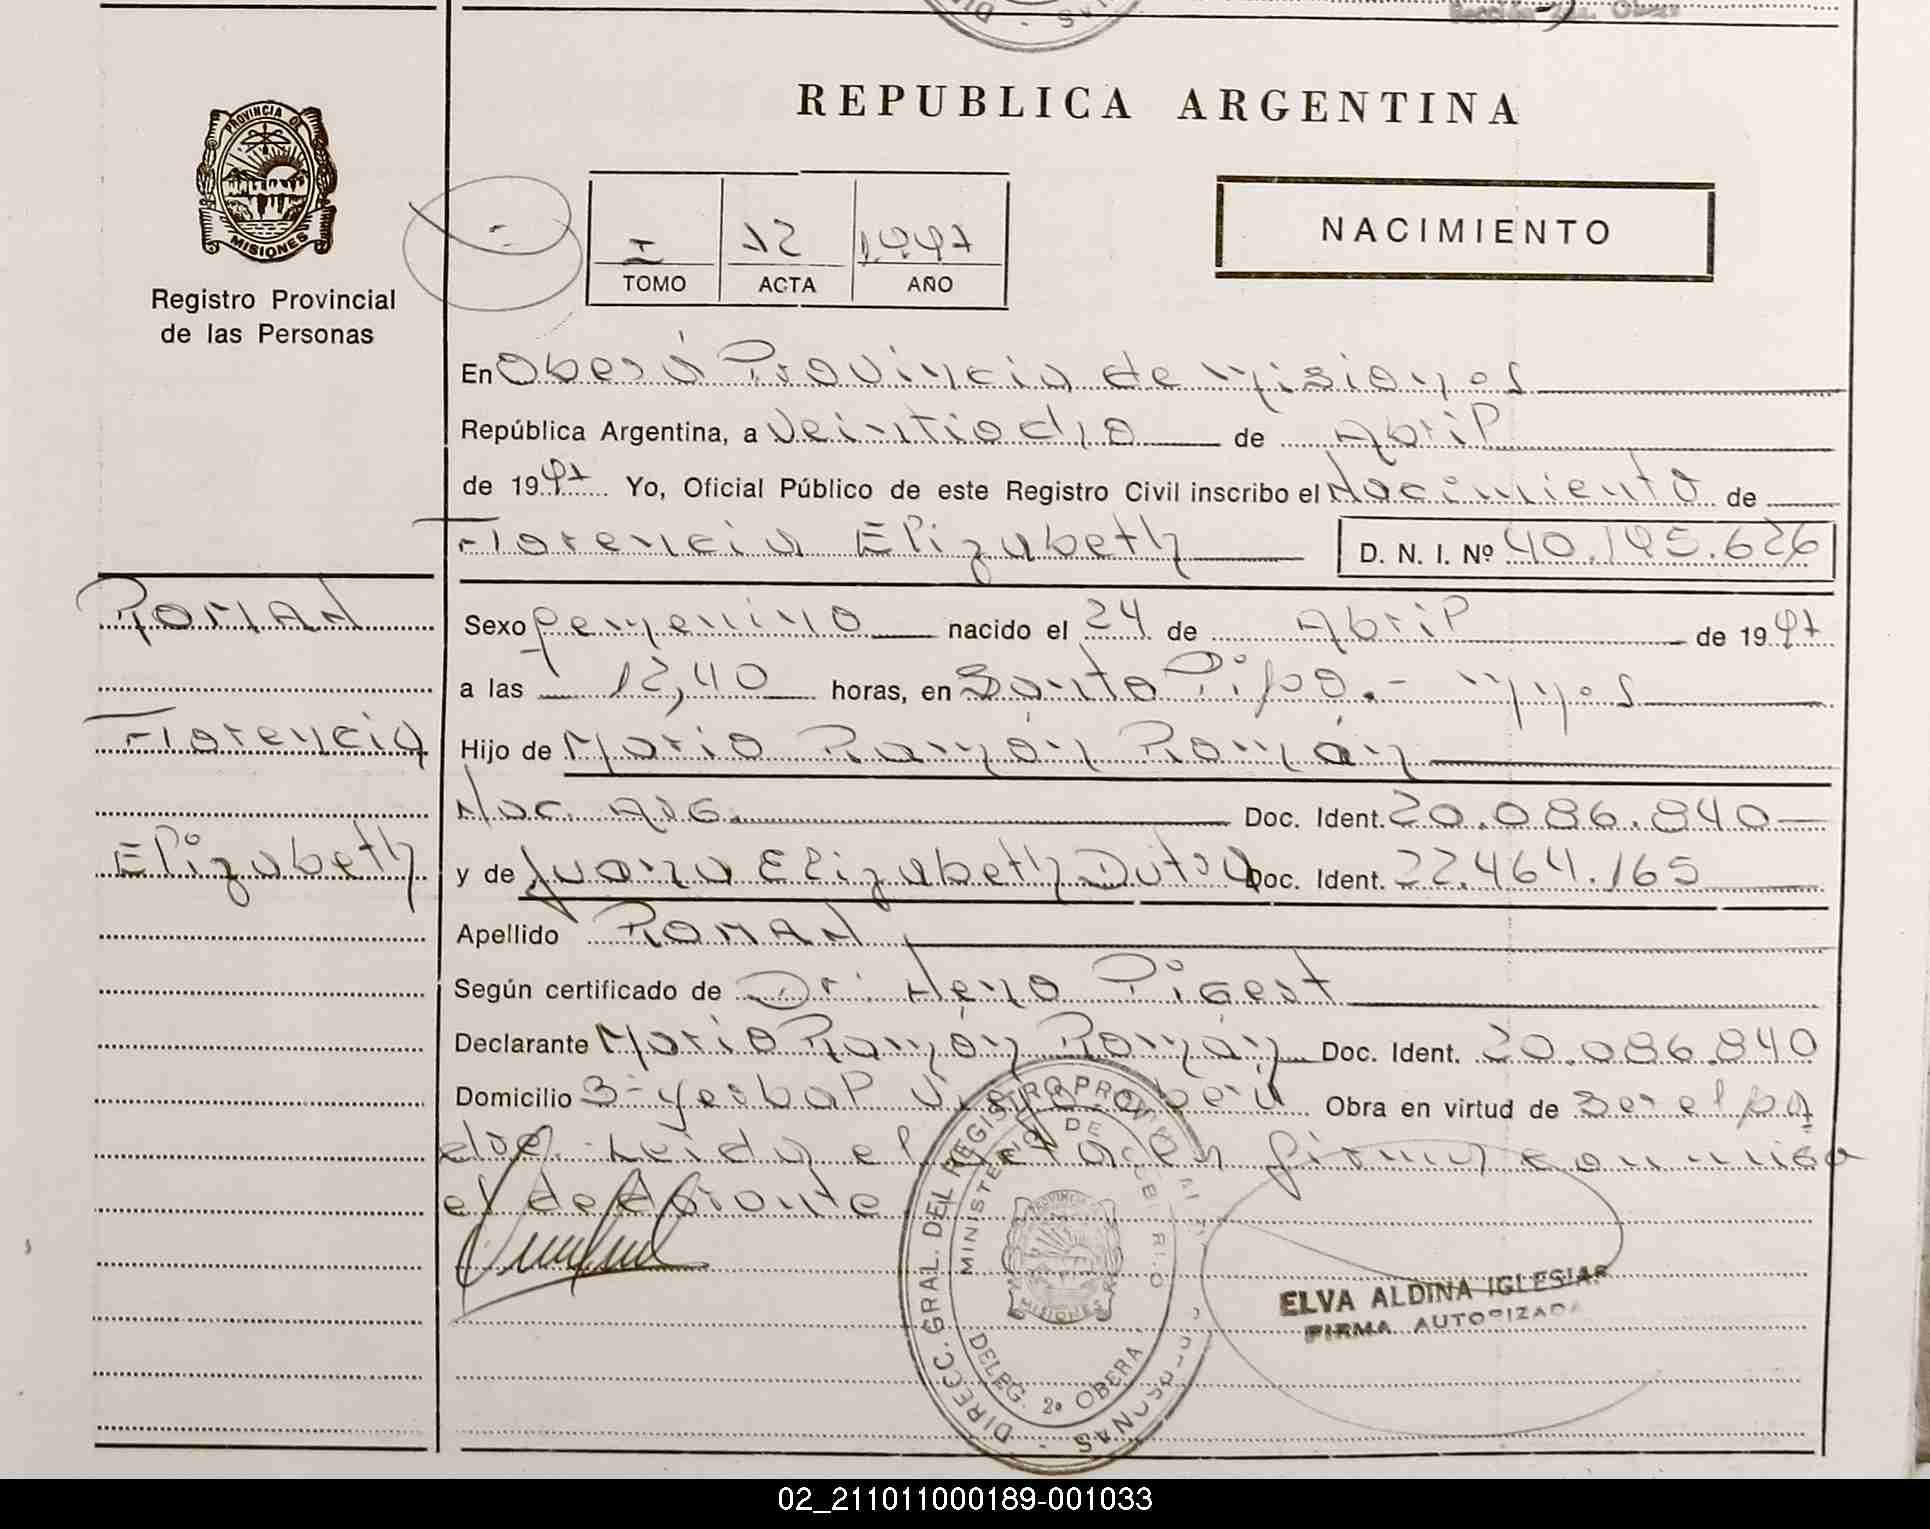 Sección 2da. Oberá
REPUBLICA ARGENTINA
PROVINCIA DE
MISIONES
Registro Provincial
de las Personas
I 12 1.997
TOMO ACTA AÑO
NACIMIENTO
En Oberá Provincia de Misiones
República Argentina, a Veintiocho de Abril
de 1997 Yo, Oficial Público de este Registro Civil inscribo el Nacimiento de
Florencia Elizabeth D. N. I. Nº 40.195.626
ROMAN
Florencia
Elizabeth
Sexo femenino nacido el 24 de Abril de 1997
a las 12,40 horas, en Santo Pipó.- Mnes
Hijo de Mario Ramón Román
Nac. Arg. Doc. Ident. 20.086.840
y de Juana Elizabeth Dutra Doc. Ident. 22.464.165
Apellido ROMAN
Según certificado de Dr:
Declarante Mario Ramón Román Doc. Ident. 20.086.840
Domicilio Yerbal Viejo Oberá Obra en virtud de ser el pa
dre. Leida el acta en firma conmigo
el declarante
DIRECC. GRAL. DEL REGISTRO PROVINCIAL PERSONAS
MINISTERIO DE GOBIERNO
PROVINCIA
MISIONES
DELEG. 2º OBERA
ELVA ALDINA IGLESIAS
FIRMA AUTORIZADA
02_211011000189-001033